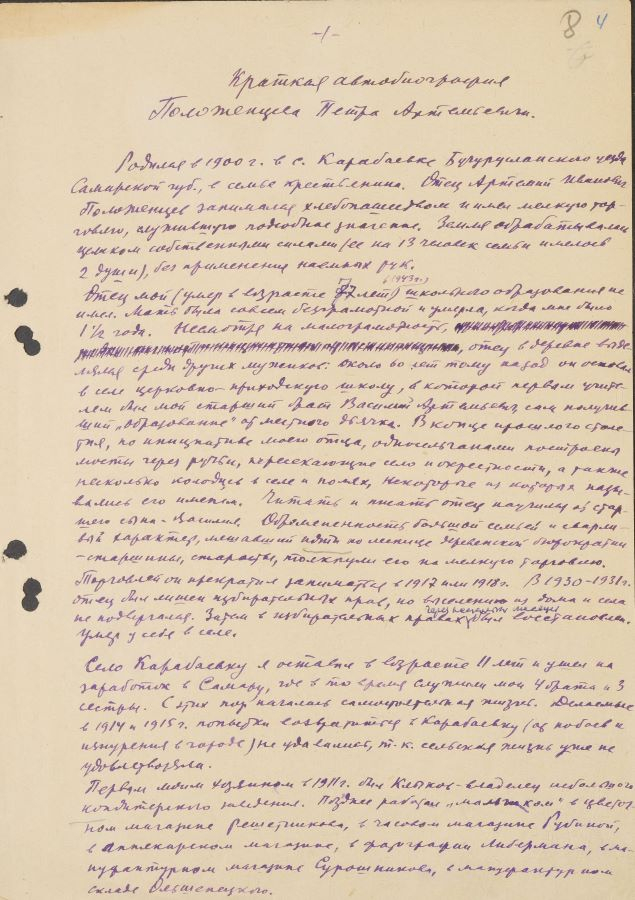 -1-
8 4
Краткая автобиография
Положенцева Петра Артемьевича.
Родился в 1900 г. в с. Карабаевке Бугурусланского уезда
Самарской губ., в семье крестьянина. Отец Артемий Иванович
Положенцев занимался хлебопашеством и имел мелкую тор-
говлю, служившую подсобное значение. Земля обрабатывалась
целиком собственными силами (ее на 13 человек семьи имелось
2 души), без применения наемных рук.
(1943 г.)
Отец мой (умер в возрасте 77 лет) школьного образования не
имел. Мать была совсем безграмотной и умерла, когда мне было
1½ года. Несмотря на малограмотность,
отец в деревне выде-
лялся среди других мужиков. Около 60 лет тому назад он основал
в селе церковно-приходскую школу, в которой первым учите-
лем был мой старший брат Василий Артемьевич, сам получив-
ший „образование" от местного дьячка. В конце прошлого столе-
тия, по инициативе моего отца, односельчанами построены
мосты через ручьи, пересекающие село и окрестности, а также
несколько колодцев в селе и полях, некоторые из которых назы-
вались его именем. Читать и писать отец научился от стар-
шего сына - Василия. Обремененность большой семьей и сварли-
вый характер, мешавший идти по лестнице деревенской бюрократии
- старшины, старосты, толкнули его на мелкую торговлю.
Торговлей он прекратил заниматься в 1917 или 1918 г. В 1930-1931 г.
отец был лишен избирательных прав, но выселению из дома и села
не подвергался. Затем в избирательных правах через несколько месяцев был восстановлен.
Умер у себя в селе.
Село Карабаевку я оставил в возрасте 11 лет и ушел на
заработок в Самару, где в то время служили мои 4 брата и 3
сестры. С этих пор началась самостоятельная жизнь. Делаемые
в 1914 и 1915 г. попытки возвратиться в Карабаевку (от побоев и
изнурения в городе) не удавались, т.к. сельская жизнь уже не
удовлетворяла.
Первым моим хозяином в 1911 г. был Клыков - владелец небольшого
кондитерского заведения. Позднее работал „мальчиком" в цветоч-
ном магазине Решетникова, в часовом магазине Рубиной,
в аптекарском магазине, в фотографии Либермана, в ма-
нуфактурном магазине Сурошникова, в мануфактурном
складе